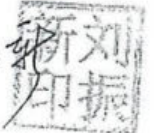 刘振
新印